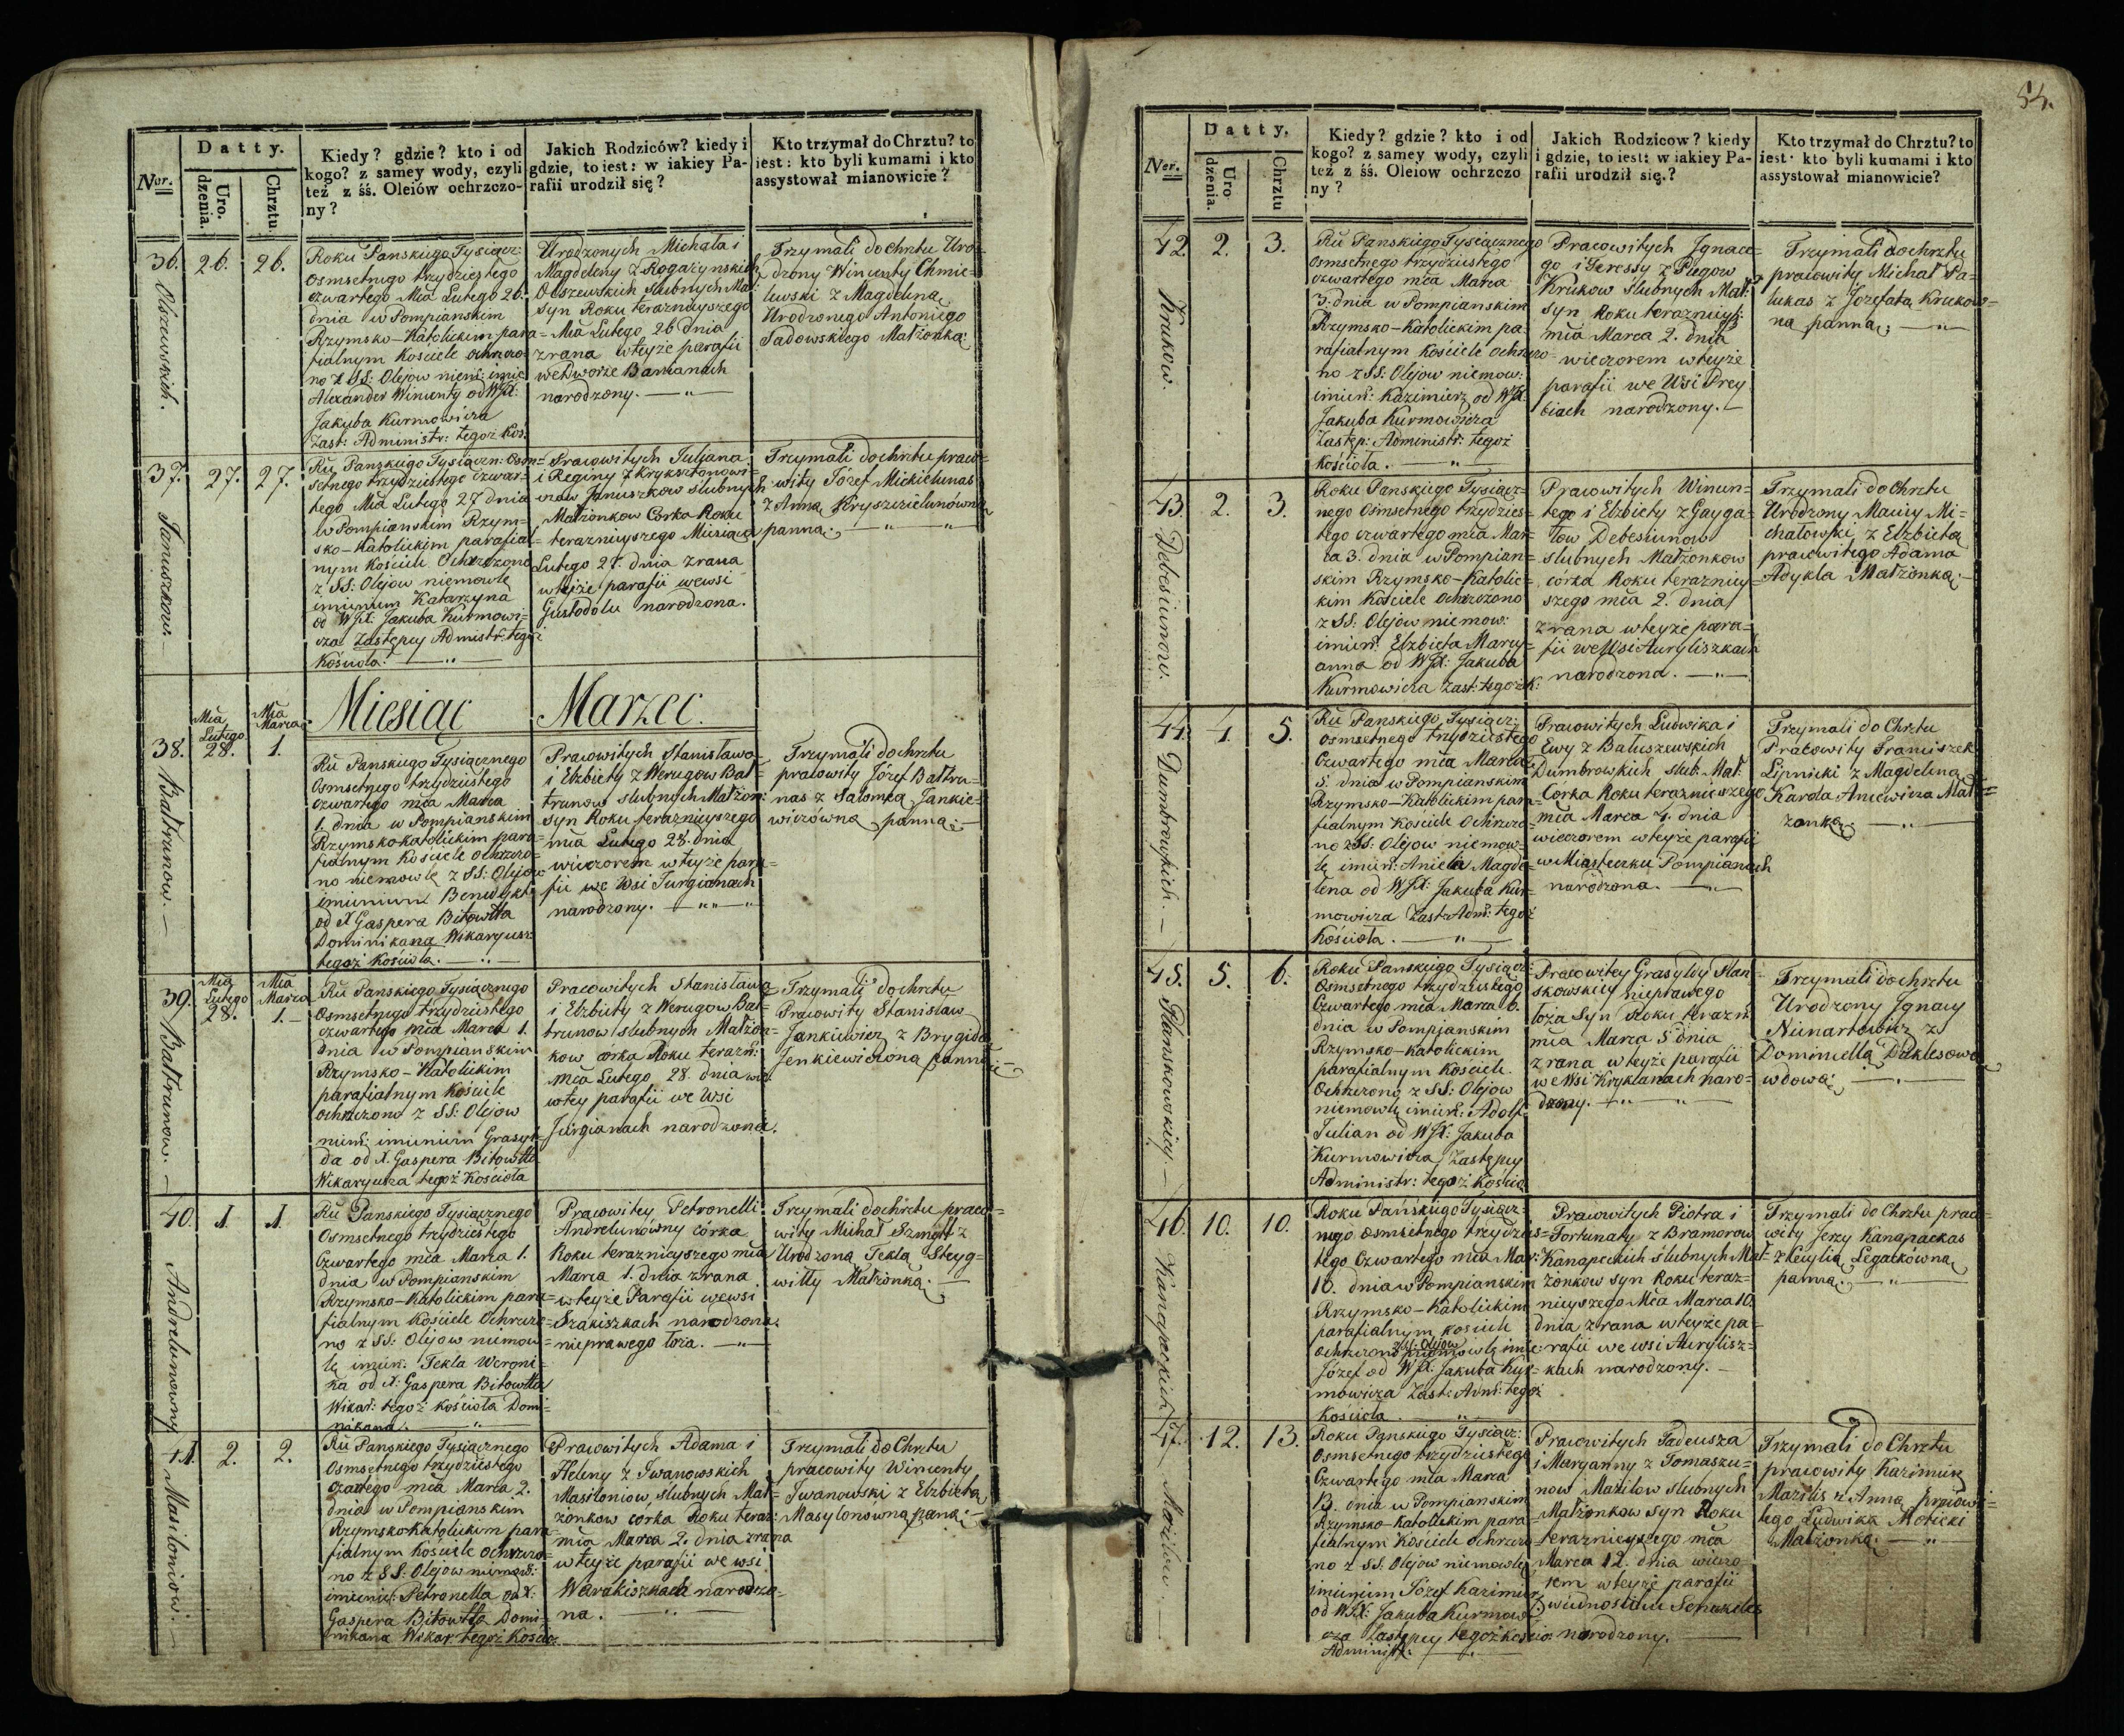 54.
Datty.
Ner.
Uro.
dzenia.
Chrztu.
Kiedy? gdzie? kto i od
kogo? z samey wody, czyli
też z śś. Oleiów ochrzczo-
ny?
Jakich Rodziców? kiedy i
gdzie, to iest: w iakiey Pa-
rafii urodził się?
Kto trzymał do Chrztu? to
iest: kto byli kumami i kto
assystował mianowicie?
36.
Olszewskich.
26.
26.
Roku Panskiego Tysiącz:
osmsetnego trzydziestego
czwartego Mca Lutego 26.
dnia w Pompianskim
Rzymsko-Katolickim para=
fialnym Kosciele ochrzczo=
no z SS: Olejow niem: imie
Alexander Wincenty od WJX:
Jakuba Kurmowicza
Zast: Administr: tegoż Koś:
Urodzonych Michała i
Magdeleny z Rogażynskich
Olszewskich slubnych Mał:
syn Roku teraznieyszego
Mca Lutego 26 dnia
zrana wteyże parafii
we Dworze Bamianach
narodzony.
Trzymali do chrztu Uro=
dzony Wincenty Chmie=
lewski z Magdeleną
Urodzonego Antoniego
Sadowskiego Małżonką;
37.
Januszkow.
27.
27.
Ru Panskiego Tysiączn: Osm=
setnego trzydziestego czwar=
tego Mca Lutego 27 dnia
w Pompianskim Rzym=
sko-Katolickim parafial=
nym Kosciele Ochrzczono
z SS: Olejow niemowle
imieniem Katarzyna
od WJX: Jakuba Kurmowi=
cza Zastępcy Admistr: tegoż
Kościoła.
Pracowitych Juljana
i Reginy z Kryksztonowi=
czow Januszkow slubnych
Małżonkow Corka Roku
teraznieyszego Miesiąca
Lutego 27. dnia zrana
wteiże parafii wewsi
Gustodolu narodzona.
Trzymali do chrztu praco=
wity Józef Mickielunas
z Anną Kryszczielunówną
panną;
Miesiąc Marzec.
38.
Bałtrunow.
Mca
Lutego
28.
Mca
Marca
1.
Ru Panskiego Tysiącznego
osmsetnego trzydziestego
czwartego mca Marca
1. dnia w Pompianskim
Rzymsko-katolickim para=
fialnym Kosciele ochrzczo=
no niemowle z SS: Olejow
imieniem Benedykt
od X Gaspera Bitowtta
Dominikana Wikaryusz
tegoż Kościoła.
Pracowitych Stanisława
i Elżbiety z Werugow Bał=
trunow slubnych Małżon:
syn Roku teraznieyszego
mca Lutego 28. dnia
wieczorem wteyże para=
fii we Wsi Jurgianach
narodzony.
Trzymali do chrztu
pracowity Józef Bałtru=
nas z Salomką Jankie=
wiczówną panną;
39.
Bałtrunow.
Mca
Lutego
28.
Mca
Marca
1.
Ru Panskiego Tysiącznego
Osmsetnego trzydziestego
czwartego mca Marca 1.
dnia w Pompianskim
Rzymsko-Katolickim
parafialnym Kosciele
ochrzczono z SS: Olejow
niem: imieniem Grasyl=
da od X. Gaspera Bitowtta
Wikaryusza tegoż Kościoła
Pracowitych Stanisława
i Elżbiety z Werugow Bał=
trunow slubnych Małżon=
kow córka Roku terazn:
mca Lutego 28. dnia wie:
wtey parafii we Wsi
Jurgianach narodzona.
Trzymali do chrztu
Pracowity Stanisław
Jankiewicz z Brygidą
Jenkiewiczoną panną;
40.
Andrelunowny
1.
1.
Ru Panskiego Tysiącznego
Osmsetnego trzydziestego
Czwartego mca Marca 1.
dnia w Pompianskim
Rzymsko-Katolickim para=
fialnym Kościele Ochrzczo=
no z SS: Olejow niemow=
lę imien: Tekla Weroni=
ka od X: Gaspera Bitowtta
Wikar: tegoż kościoła Domi=
nikana.
Pracowitey Petronelli
Andrelunówny córka
Roku teraznieyszego mca
Marca 1. dnia zrana
wteyże Parafii wewsi
Szakiszkach narodzona
nieprawego łoza.
Trzymali do chrztu praco=
wity Michał Szmatt z
Urodzoną Teklą Steyg=
wiłły Małżonką.
41.
Masiloniow.
2.
2.
Ru Panskiego Tysiącznego
Osmsetnego trzydziestego
czartego mca Marca 2.
dnia w Pompianskim
Rzymsko-Katolickim para=
fialnym Kościele ochrzczo=
no z SS: Olejow niemow:
imienie: Petronella od X:
Gaspera Bitowtta Domi=
nikana Wikar tegoż Kościo:
Pracowitych Adama i
Heleny z Iwanowskich
Masiloniow, slubnych Mał=
żonkow córka Roku teraz:
mca Marca 2. dnia zrana
wteyże parafii we wsi
Warakiszkach narodzo=
na.
Trzymali do Chrztu
pracowity Wincenty
Iwanowski z Elżbietą
Masylonówną paną;
Datty.
Ner.
Uro
dzenia.
Chrztu
Kiedy? gdzie? kto i od
kogo? z samey wody, czyli
też z śś. Oleiow ochrzczo
ny?
Jakich Rodzicow? kiedy
i gdzie, to iest: w iakiey Pa-
rafii urodził się.?
Kto trzymał do Chrztu? to
iest: kto byli kumami i kto
assystował mianowicie?
42.
Krukow.
2.
3.
Ru Panskiego Tysiącznego
osmsetnego trzydziestego
czwartego mca Marca
3. dnia w Pompianskim
Rzymsko-Katolickim pa=
rafialnym Kościele ochrzczo=
no z SS: Olejow niemow:
imień: Kazimierz od WJX:
Jakuba Kurmowicza
Zastęp: Administr: tegoż
Kościoła.
Pracowitych Ignace=
go i Teressy z Puegow
Krukow slubnych Mał:
syn Roku teraznieysz:
mca Marca 2. dnia
wieczorem wteyże
parafii we Wsi Prey
biach narodzony.
Trzymali do chrztu
pracowity Michał Pa=
lukas z Jozefatą Krukow=
na panną;
43.
Debesiunow.
2.
3.
Roku Panskiego Tysiącz=
nego Osmsetnego trzydzies=
tego czwartego mca Mar=
ca 3. dnia w Pompian=
skim Rzymsko-Katolic=
kim Kościele Ochrzczono
z SS: Olejów niemow:
imień: Elżbieta Mary=
anna od WJX: Jakuba
Kurmowicza Zast: tegoż k:
Pracowitych Wincen=
tego i Elżbiety z Gayga=
łow Debesiunow
slubnych Małżonkow
córka Roku teraznie
szego mca 2. dnia
zrana wteyże para=
fii we Wsi Auryliszkach
narodzona.
Trzymali do Chrztu
Urodzony Maucy Mi=
chałowski z Elżbietą
pracowitego Adama
Adykla Małżonką;
44.
Dumbrowskich.
4.
5.
Ru Panskiego, Tysiącz:
osmsetnego trzydziestego
Czwartego mca Marca
5. dnia w Pompianskim
Rzymsko-Katolickim para=
fialnym Kościele Ochrzczo=
no z SS: Olejow niemow=
lę imień: Aniela Magde=
lena od WJX: Jakuba Kur=
mowicza Zast: Adm: tegoż
Kościoła.
Pracowitych Ludwika i
Ewy z Batuszewskich
Dumbrowkich slub: Mał:
Córka Roku teraznieszego
mca Marca 4. dnia
wieczorem wteyże parafii
w Miasteczku Pompianach
narodzona.
Trzymali do Chrztu
Pracowity Franciszek
Lipnicki z Magdeleną
Karola Aniewicza Mał=
zonką;
45.
Stanskowskiey.
5.
6.
Roku Panskiego Tysiącz:
Osmsetnego trzydziestego
Czwartego mca Marca 6.
dnia w Pompjanskim
Rzymsko-Katolickim
parafialnym Kościele
Ochrzczono z SS: Olejow
niemowlę imień: Adolf
Julian od WJX: Jakuba
Kurmowicza Zastępcy
Administr: tegoż Kościo
Pracowitey Grasyldy Stan
skowskiey nieprawego
łoża Syn Roku terazń:
mca Marca 5 dnia
zrana wteyże parafii
we Wsi Kryklanach naro=
dzony.
Trzymali do chrztu
Urodzony Ignacy
Nienartowicz z
Dominiellą Daklesową
wdową;
46.
Kanapeckich
10.
10.
Roku Pańskiego Tysiącz=
nego osmsetnego trzydzies=
tego Czwartego mca Mar:
10. dnia w Pompianskim
Rzymsko-Katolickim
parafialnym kosciele
z SS: Olejow
ochrzczono niemowlę imie:
Józef od WJX: Jakuba Kur=
mowicza Zast: Adm: tegoż
Kościoła.
Pracowitych Piotra i
Fortunaty z Bramorow
Kanapeckich slubnych Mał=
żonkow syn Roku teraz=
nieyszego Mca Marca 10.
dnia zrana wteyże pa=
rafii we wsi Aurylisz=
kach narodzony.
Trzymali do Chrztu praco=
wity Jerzy Kanapackas
z Cecylią Legatkówną
panną.
47.
Mażilow
12.
13.
Roku Panskiego Tysiącz:
Osmsetnego trzydziestego
Czwartego mca Marca
13. dnia w Pompianskim
Rzymsko-katolickim para=
fialnym Kościele ochrzczo=
no z SS. Olejow niemowlę
imieniem Józef Kazimierz
od WJX: Jakuba Kurmow=
cza Zastępcy tegoż kościo:
Administr:
Pracowitych Tadeusza
i Maryanny z Tomaszu=
now Mażilow slubnych
Małżonkow syn Roku
teraznieyszego mca
Marca 12. dnia wieczo
rem wteyże parafii
narodzony.
Trzymali do Chrztu
pracowity Kazimierz
Mażilis z Anną pracowi=
tego Ludwika Moticki
Małżonką.